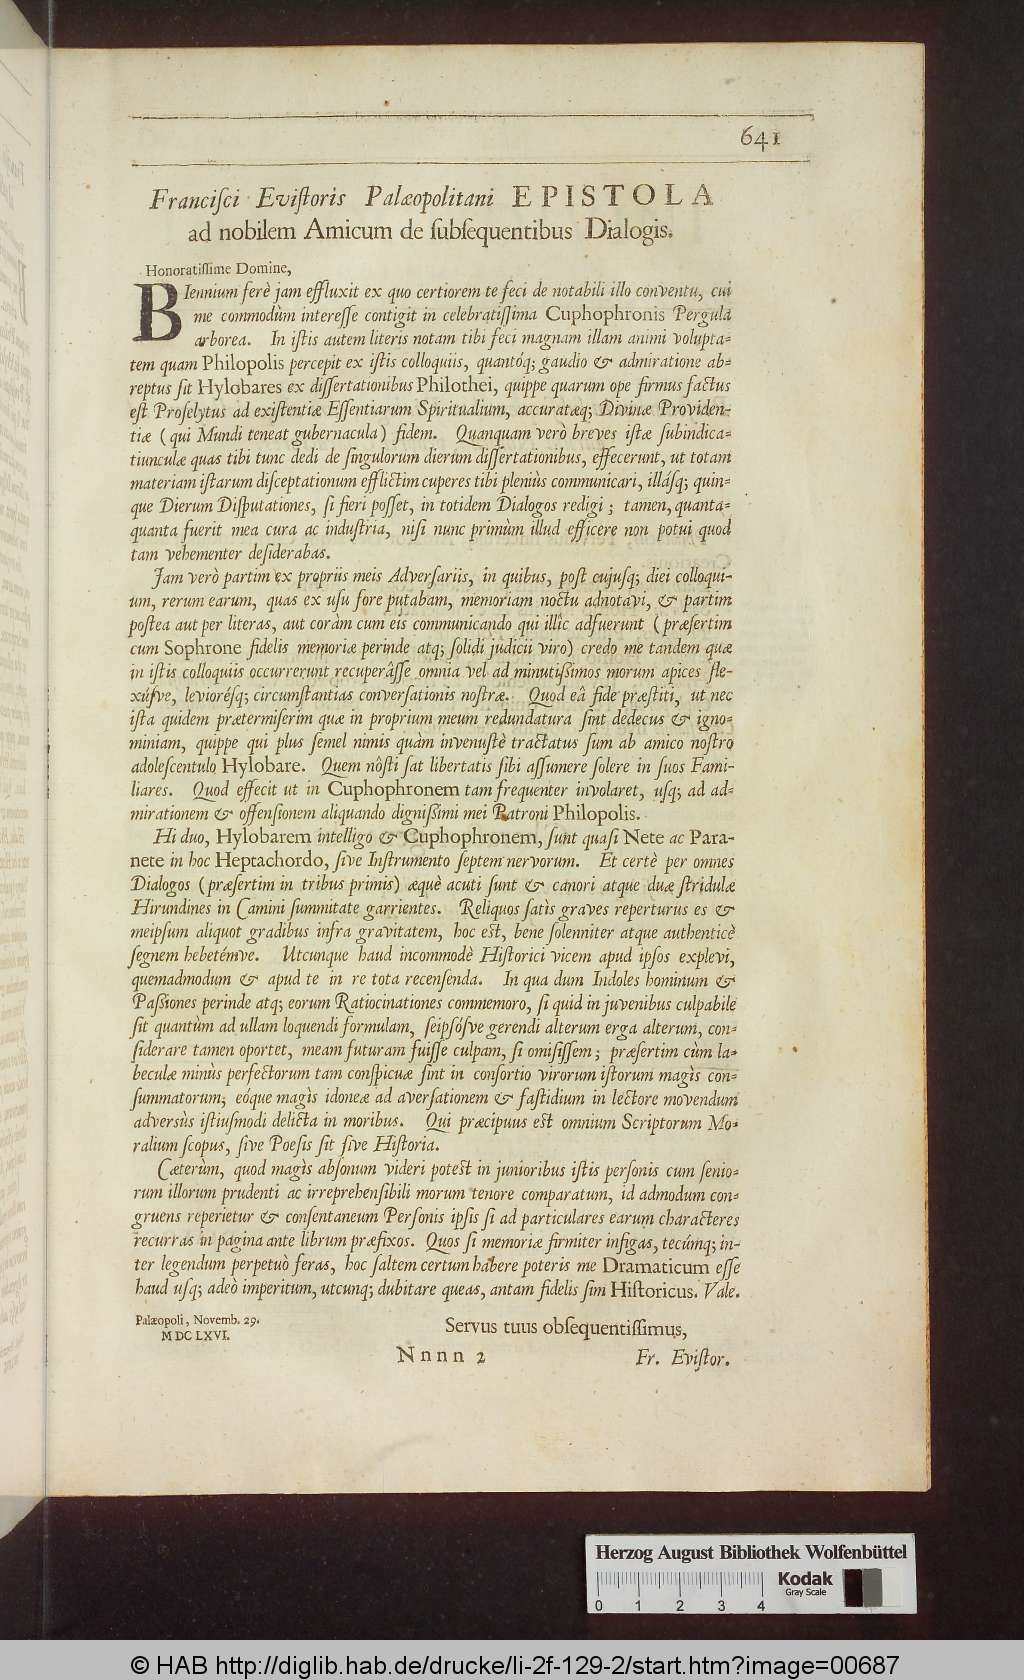 641
Franciſci Eviſtoris Palæopolitani EPISTOLA
ad nobilem Amicum de ſubſequentibus Dialogis.
Honoratiſſime Domine,
BIennium ferè jam effluxit ex quo certiorem te feci de notabili illo conventu, cui
me commodùm intereſſe contigit in celebratiſſima Cuphophronis Pergulâ
arborea. In iſtis autem literis notam tibi feci magnam illam animi volupta-
tem quam Philopolis percepit ex iſtis colloquiis, quantóq; gaudio & admiratione ab-
reptus ſit Hylobares ex diſſertationibus Philothei, quippe quarum ope firmus factus
eſt Proſelytus ad exiſtentiæ Eſſentiarum Spiritualium, accuratæq; Divinæ Providen-
tiæ (qui Mundi teneat gubernacula) fidem. Quanquam verò breves iſtæ ſubindica-
tiunculæ quas tibi tunc dedi de ſingulorum dierum diſſertationibus, effecerunt, ut totam
materiam iſtarum diſceptationum efflictim cuperes tibi pleniùs communicari, illáſq; quin-
que Dierum Diſputationes, ſi fieri poſſet, in totidem Dialogos redigi; tamen, quanta-
quanta fuerit mea cura ac induſtria, niſi nunc primùm illud efficere non potui quod
tam vehementer deſiderabas.
Jam verò partim ex propriis meis Adverſariis, in quibus, poſt cujuſq; diei colloqui-
um, rerum earum, quas ex uſu fore putabam, memoriam noctu adnotavi, & partim
poſtea aut per literas, aut coràm cum eis communicando qui illîc adfuerunt (præſertim
cum Sophrone fidelis memoriæ perinde atq; ſolidi judicii viro) credo me tandem quæ
in iſtis colloquiis occurrerunt recuperâſſe omnia vel ad minutiſſimos morum apices fle-
xúſve, levioréſq; circumſtantias converſationis noſtræ. Quod eâ fide præſtiti, ut nec
iſta quidem prætermiſerim quæ in proprium meum redundatura ſint dedecus & igno-
miniam, quippe qui plus ſemel nimis quàm invenuſtè tractatus ſum ab amico noſtro
adoleſcentulo Hylobare. Quem nôſti ſat libertatis ſibi aſſumere ſolere in ſuos Fami-
liares. Quod effecit ut in Cuphophronem tam frequenter involaret, uſq; ad ad-
mirationem & offenſionem aliquando digniſſimi mei Patroni Philopolis.
Hi duo, Hylobarem intelligo & Cuphophronem, ſunt quaſi Nete ac Para-
nete in hoc Heptachordo, ſive Inſtrumento ſeptem nervorum. Et certè per omnes
Dialogos (præſertim in tribus primis) æquè acuti ſunt & canori atque duæ ſtridulæ
Hirundines in Camini ſummitate garrientes. Reliquos ſatìs graves reperturus es &
meipſum aliquot gradibus infra gravitatem, hoc eſt, bene ſolenniter atque authenticè
ſegnem hebetémve. Utcunque haud incommodè Hiſtorici vicem apud ipſos explevi,
quemadmodum & apud te in re tota recenſenda. In qua dum Indoles hominum &
Paſſiones perinde atq; eorum Ratiocinationes commemoro, ſi quid in juvenibus culpabile
ſit quantùm ad ullam loquendi formulam, ſeipſóſve gerendi alterum erga alterum, con-
ſiderare tamen oportet, meam futuram fuiſſe culpam, ſi omiſiſſem; præſertim cùm la-
beculæ minùs perfectorum tam conſpicuæ ſint in conſortio virorum iſtorum magìs con-
ſummatorum; eóque magìs idoneæ ad averſationem & faſtidium in lectore movendum
adversùs iſtiuſmodi delicta in moribus. Qui præcipuus eſt omnium Scriptorum Mo-
ralium ſcopus, ſive Poeſis ſit ſive Hiſtoria.
Cæterùm, quod magìs abſonum videri poteſt in junioribus iſtis perſonis cum ſenio-
rum illorum prudenti ac irreprehenſibili morum tenore comparatum, id admodum con-
gruens reperietur & conſentaneum Perſonis ipſis ſi ad particulares earum characteres
recurras in pagina ante librum præfixos. Quos ſi memoriæ firmiter infigas, tecúmq; in-
ter legendum perpetuò feras, hoc ſaltem certum habere poteris me Dramaticum eſſe
haud uſq; adeò imperitum, utcunq; dubitare queas, antam fidelis ſim Hiſtoricus. Vale.
Palæopoli, Novemb. 29.
MDCLXVI.
Servus tuus obſequentiſſimus,
Nnnn 2
Fr. Eviſtor.
Herzog August Bibliothek Wolfenbüttel
Kodak
Gray Scale
0 1 2 3 4
© HAB http://diglib.hab.de/drucke/li-2f-129-2/start.htm?image=00687